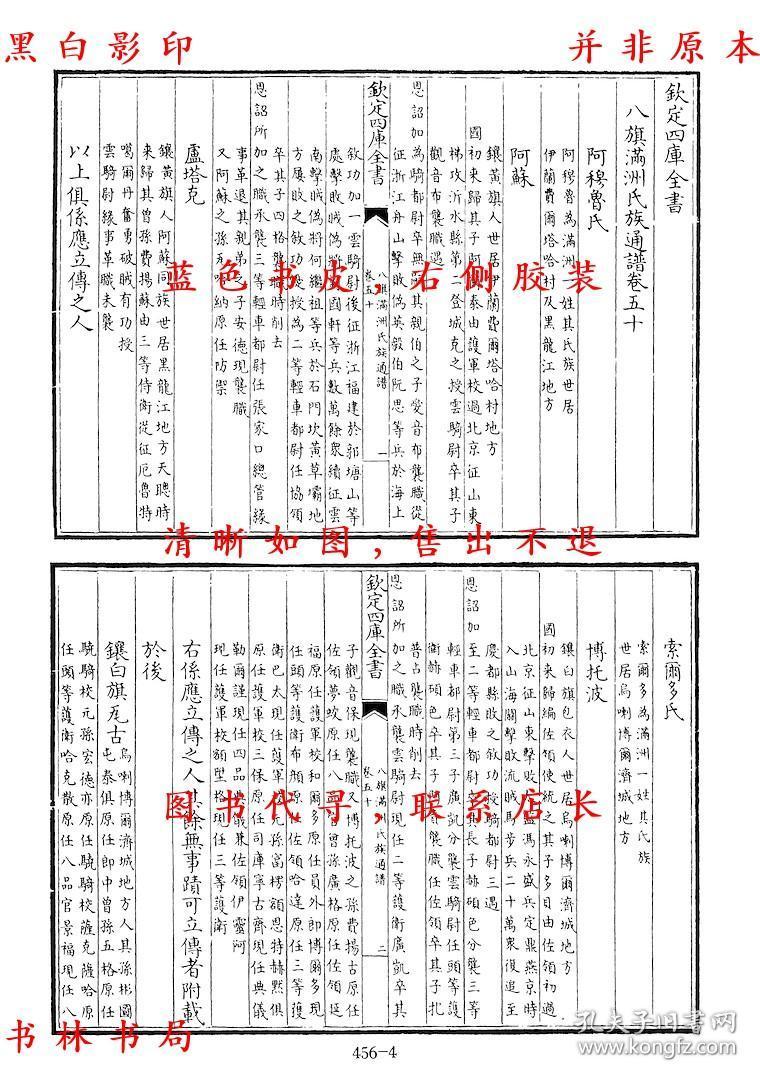 黑白影印
并非原本
欽定四庫全書
八旗滿洲氏族通譜卷五十
阿穆魯氏
阿穆魯為滿洲一姓其氏族世居
伊蘭費爾塔哈村及黑龍江地方
阿蘇
鑲黃旗人世居伊蘭費爾塔哈村地方
國初來歸其子阿
泰由護軍校過北京征山東
梯攻沂水縣第二登城克之授雲騎尉卒其子
觀音布襲職遇
恩詔加為騎都尉卒無嗣其親伯之子愛音布襲職從
征浙江舟山擊敗偽英毅伯阮思等兵於海上
欽定四庫全書
八旗滿洲氏族通譜
卷五十
一
敘功加一雲騎尉後征浙江福建於郭塘山等
處擊敗賊偽將
國軒等兵數萬餘衆續征雲
南擊賊偽將何繼祖等兵於石門坎黃草壩地
方屢敗之敘功
授為二等輕車都尉任協領
卒其子四格襲職時削去
恩詔所加之職承襲三等輕車都尉任張家口總管緣
事革退其親弟之子安德現襲職
又阿蘇之孫瓦
納原任防禦
盧塔克
鑲黃旗人阿蘇同族世居黑龍江地方天聰時
來歸其曾孫費揚蘇由三等侍衛從征厄魯特
噶爾丹奮勇破賊有功授
雲騎尉緣事革職未襲
以上俱係應立傳之人
蓝色书皮，右侧胶装
清晰如图，售出不退
索爾多氏
索爾多為滿洲一姓其氏族
世居烏喇博爾濟城地方
博托波
鑲白旗包衣人世居烏喇博爾濟城地方
國初來歸編佐領使統之其子多自由佐領初過
北京征山東擊敗
監馮永盛兵定鼎燕京時
入山海關擊敗流賊馬步兵二十萬衆復追至
慶都縣敗之敘功授騎都尉三遇
恩詔加至二等輕車都尉卒其長子赫碩色分襲三等
輕車都尉第三子廣凱分襲雲騎尉任頭等護
衛赫碩色卒其子
襲職任佐領卒其子北
普占襲職時削去
恩詔所加之職承襲雲騎尉現任二等護衛廣凱卒其
欽定四庫全書
八旗滿洲氏族通譜
卷五十
二
子觀音保現襲職又博托波之孫費揚古原任
佐領萬蚊原任八
曾孫廣格原任佐領延
福原任護軍校和爾多原任員外郎博爾多現
任頭等護衛布顏原
佐領哈達原任三等護
衛巴太現任護軍
元孫富楞額恩特赫默俱
原任護軍校三保原任司庫寧古齊現任典儀
勒爾謹現任四品典儀兼佐領伊靈阿
現任護軍校額塱格現任三等護衛
右係應立傳之人其餘無事蹟可立傳者附載
於後
鑲白旗瓦古
烏喇博爾濟城地方人其孫彬圖
屯泰俱原任郎中曾孫五格原任
驍騎校元孫宏德亦原任驍騎校薩克薩哈原
任頭等護衛哈克散原任八品官景福現任八
图书代寻，联系店长
书林书局
456-4
孔夫子旧书网
www.kongfz.com